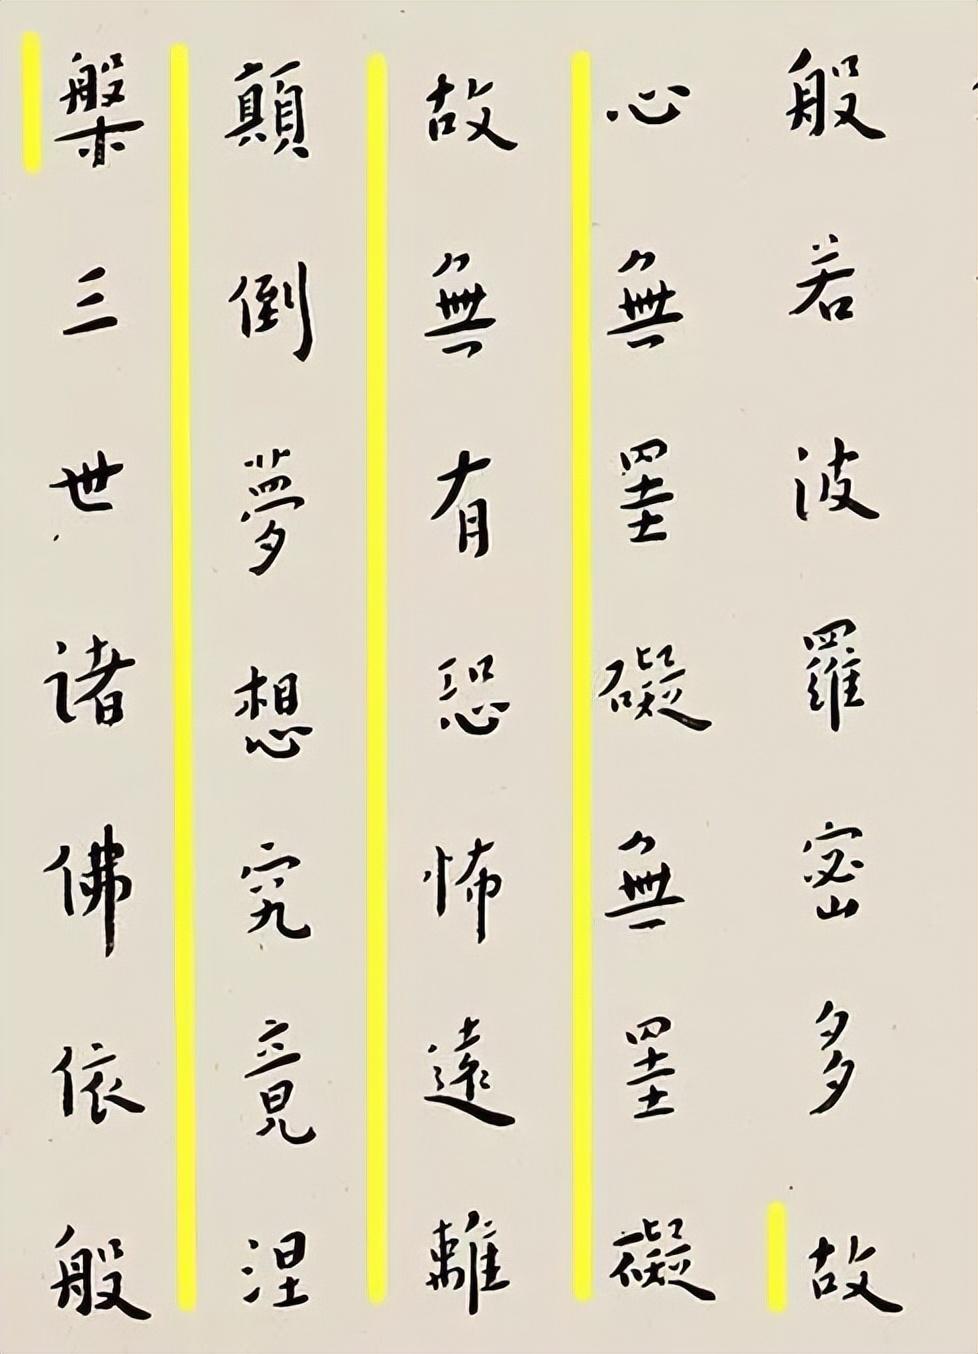 般若波羅蜜多故
心無罣礙無罣礙
故無有恐怖遠離
顛倒夢想究竟涅
槃三世諸佛依般